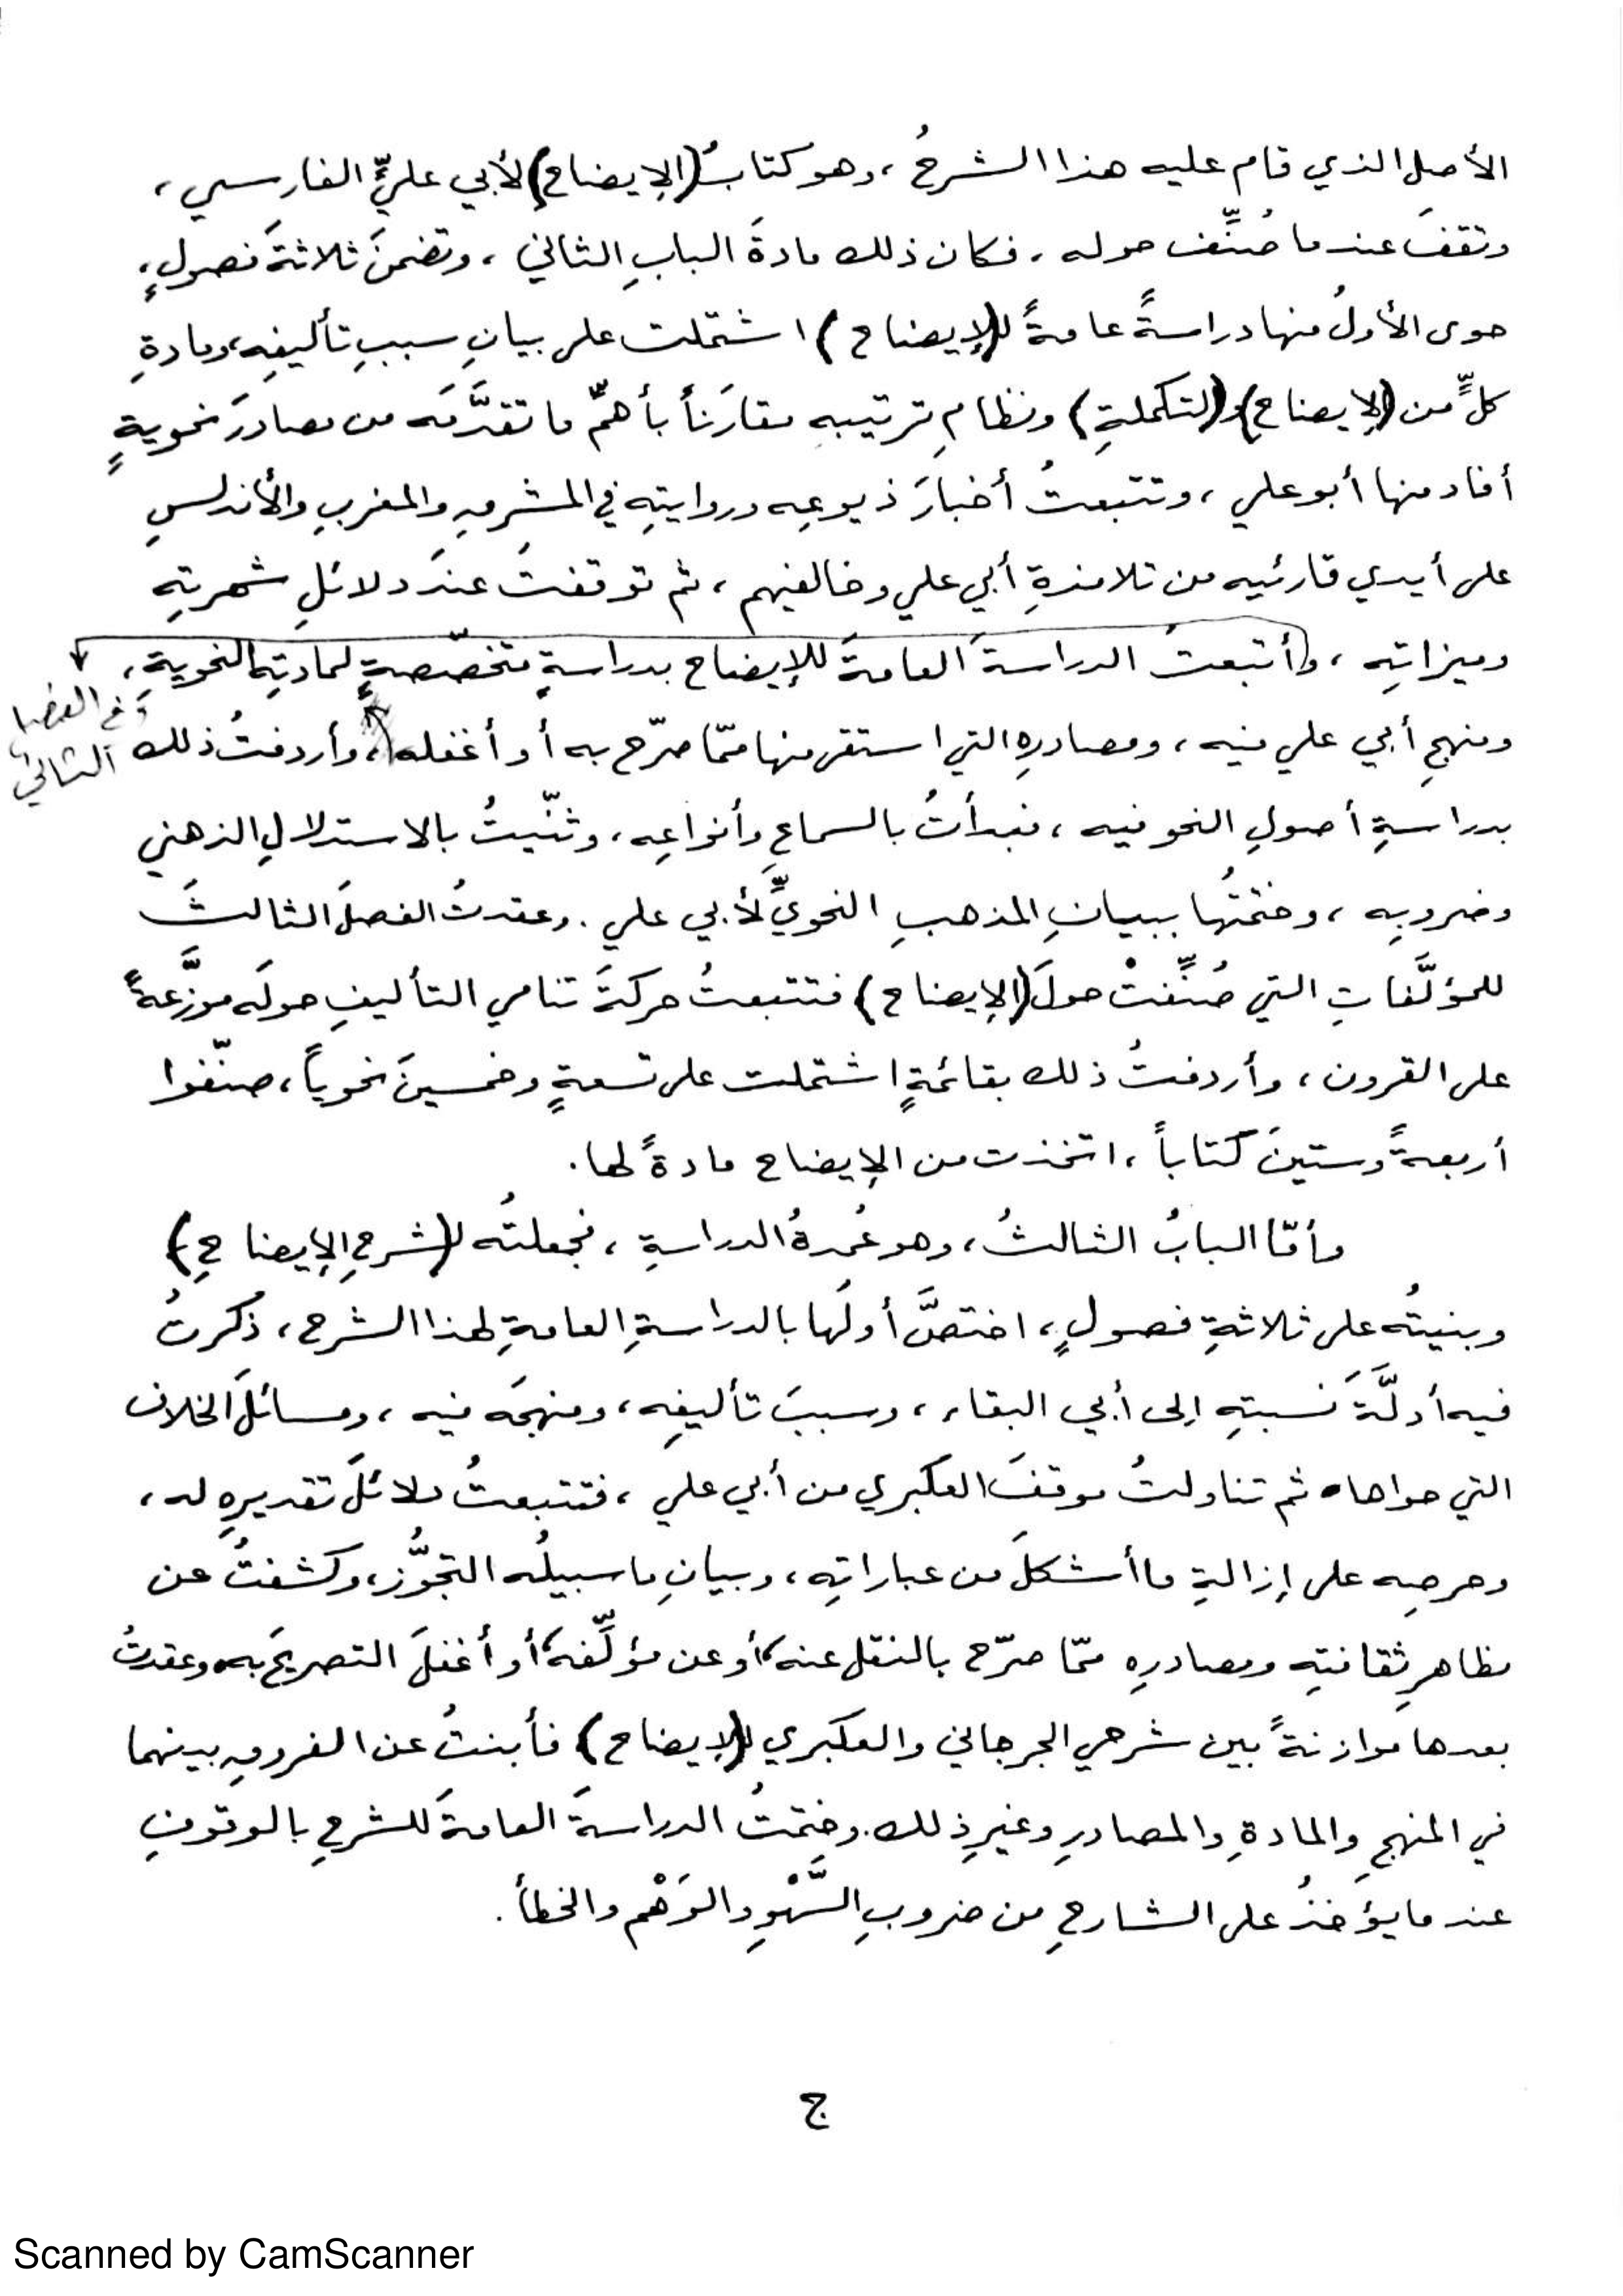 الأصل الذي قام عليه هذا الشرحُ ، وهو كتابُ (الإيضاح) لأبي عليٍّ الفارسي ،
وتقفَ عند ما صُنِّف حوله ، فكان ذلك مادةَ البابِ الثاني ، وتضمنَ ثلاثةَ فصولٍ ،
حوى الأولُ منها دراسةً عامةً لـ(لإيضاح) اشتملت على بيانِ سببِ تأليفِه ، ومادةِ
كلٍّ من (الإيضاح) و(التكملةِ) ونظامِ ترتيبه مقارَناً بأهمِّ ما تقدَّمَه من مصادرَ نحويةٍ
أفاد منها أبو علي ، وتتبعتُ أخبارَ ذيوعِه وروايتِه في المشرقِ والمغربِ والأندلسِ
على أيدي قارئيه من تلامذةِ أبي علي وخالفيهم ، ثم توقفتُ عندَ دلائلِ شهرتِه
وميزاتِه ، وأتبعتُ الدراسةَ العامةَ للإيضاح بدراسةٍ متخصّصةٍ لمادتِه النحويةِ ،
في الفصل
الثاني
ومنهجِ أبي علي فيه ، ومصادرِه التي استقى منها ممّا صرّح به أو أغفله ، وأردفتُ ذلك
بدراسةِ أصولِ النحو فيه ، فبدأتُ بالسماعِ وأنواعِه ، وثنّيتُ بالاستدلالِ الذهني
وضروبِه ، وختمتُها ببيانِ المذهبِ النحويِّ لأبي علي . وعقدتُ الفصلَ الثالثَ
للمؤلَّفاتِ التي صُنِّفتْ حولَ (الإيضاح) فتتبعتُ حركةَ تنامي التأليفِ حولَه موزَّعةً
على القرون ، وأردفتُ ذلك بقائمةٍ اشتملت على تسعةٍ وخمسينَ نحوياً ، صنّفوا
أربعةً وستينَ كتاباً ، اتخذت من الإيضاح مادةً لها .
وأمّا البابُ الثالثُ ، وهو عُمدةُ الدراسةِ ، فجعلتُه لـ(شرحِ الإيضاحِ)
وبنيتُه على ثلاثةِ فصولٍ ، اختصَّ أولُها بالدراسةِ العامةِ لهذا الشرح ، ذكرتُ
فيه أدلَّةَ نسبتِه إلى أبي البقاء ، وسببَ تأليفِه ، ومنهجَه فيه ، ومسائلَ الخلاف
التي حواها . ثم تناولتُ موقفَ العكبري من أبي علي ، فتتبعتُ دلائلَ تقديرِه له ،
وحرصِه على إزالةِ ما أشكلَ من عباراتِه ، وبيانِ ما سبيلُه التجوُّز ، وكشفتُ عن
مظاهرِ ثقافتِه ومصادرِه ممّا صرّح بالنقل عنه ، أو عن مؤلِّفه ، أو أغفلَ التصريحَ به . وعقدتُ
بعدها موازنةً بين شرحي الجرجاني والعكبري لـ(لإيضاح) فأبنتُ عن الفروقِ بينهما
في المنهجِ والمادةِ والمصادرِ وغيرِ ذلك . وختمتُ الدراسةَ العامةَ للشرحِ بالوقوفِ
عند ما يؤخذُ على الشارحِ من ضروبِ السَّهْوِ والوَهْم والخطأ .
ج
Scanned by CamScanner